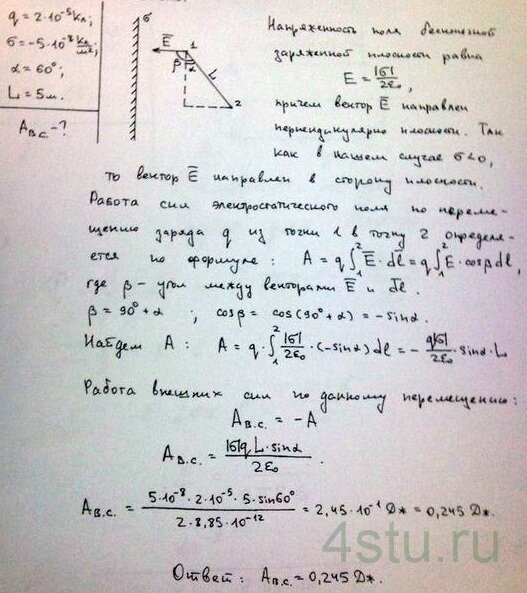 q = 2·10⁻⁵ Кл;
σ = -5·10⁻⁸ Кл/м²;
α = 60°;
L = 5 м.
A в.с. - ?
σ
E̅ 1
β α L
2
Напряженность поля бесконечной
заряженной плоскости равна
E = |σ|/2ε₀,
причем вектор E̅ направлен
перпендикулярно плоскости. Так
как в нашем случае σ<0,
то вектор E̅ направлен в сторону плоскости.
Работа сил электростатического поля по переме-
щению заряда q из точки 1 в точку 2 определя-
ется по формуле: A = q∫₁² E̅·dl̅ = q∫₁² E·cosβdl,
где β - угол между векторами E̅ и dl̅.
β = 90°+α ; cosβ = cos(90°+α) = -sinα.
Найдем A: A = q·∫₁² |σ|/2ε₀·(-sinα)dl = - q|σ|/2ε₀·sinα·L
Работа внешних сил по данному перемещению:
A в.с. = -A
A в.с. = |σ|q L·sinα/2ε₀.
A в.с. = 5·10⁻⁸·2·10⁻⁵·5·sin60°/2·8,85·10⁻¹² = 2,45·10⁻¹ Дж = 0,245 Дж.
4stu.ru
Ответ: A в.с. = 0,245 Дж.